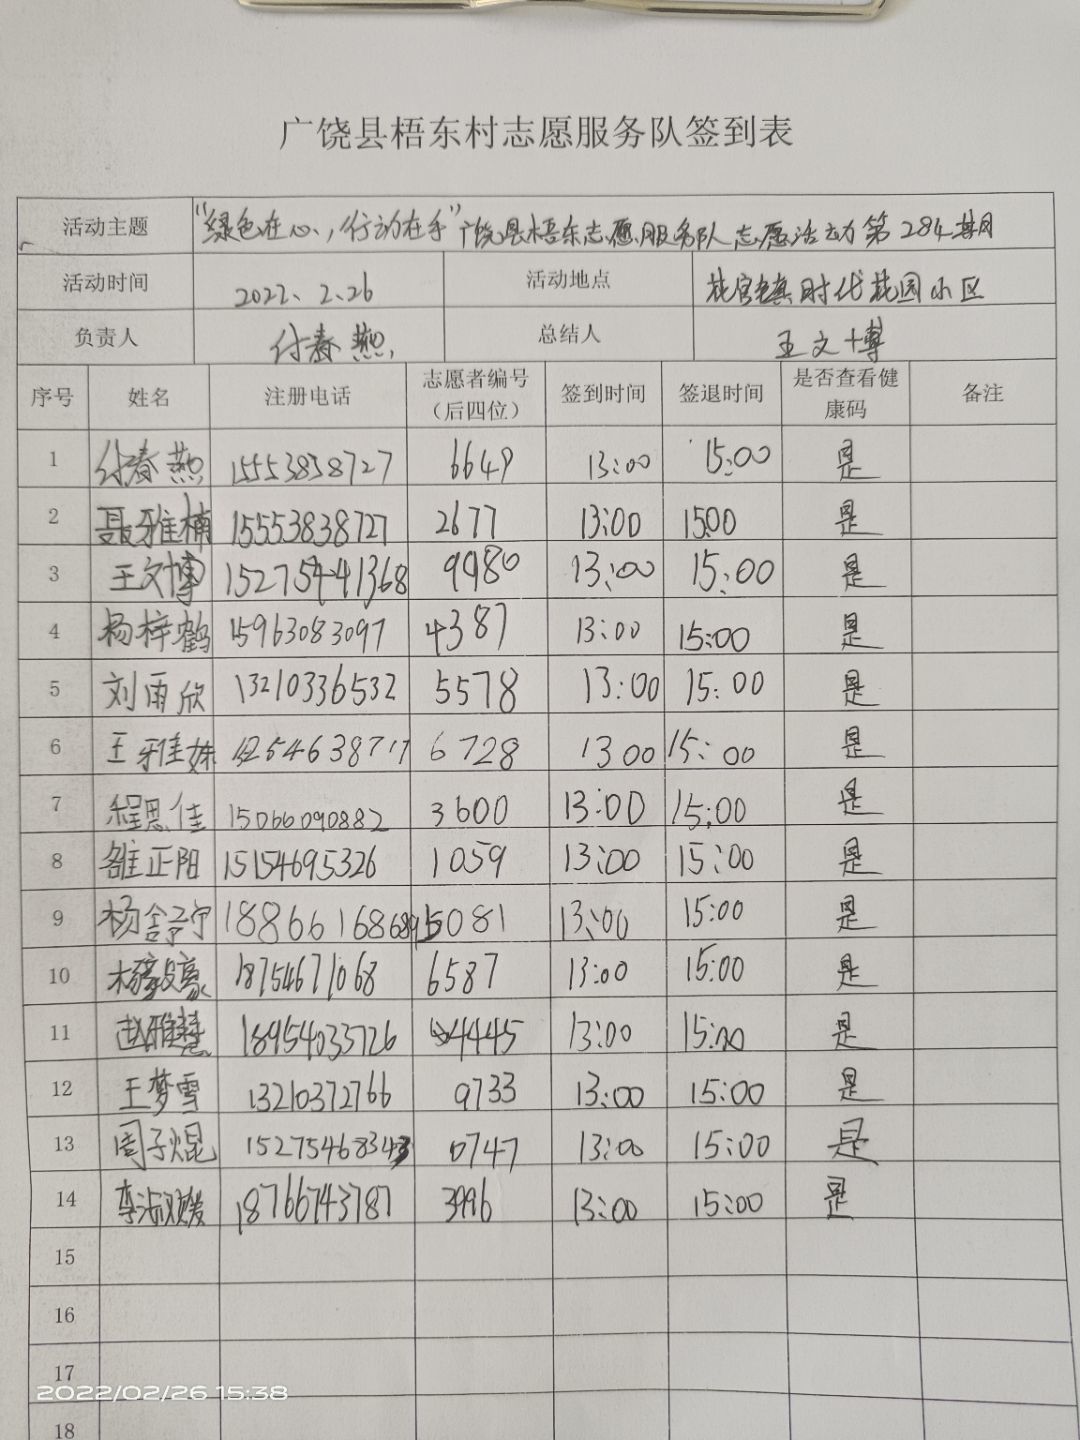 广饶县梧东村志愿服务队签到表
活动主题 "绿色在心,行动在手"广饶县梧东志愿服务队志愿活动第284期
活动时间 2022、2.26 活动地点 花官镇时代花园小区
负责人 付春燕 总结人 王文博
序号 姓名 注册电话 志愿者编号（后四位） 签到时间 签退时间 是否查看健康码 备注
1 付春燕 15553838727 6649 13:00 15:00 是
2 聂雅楠 15553838727 2677 13:00 1500 是
3 王文博 15275441368 9980 13:00 15:00 是
4 杨梓鹤 15963083097 4387 13:00 15:00 是
5 刘雨欣 13210336532 5578 13:00 15:00 是
6 王雅姝 6728 1300 15:00 是
7 程思佳 15066090882 3600 13:00 15:00 是
8 雒正阳 15154695326 1059 13:00 15:00 是
9 杨舒宁 5081 13:00 15:00 是
10 18754671068 6587 13:00 15:00 是
11 赵雅慧 18954033726 4445 13:00 15:00 是
12 王梦雪 13210372766 9733 13:00 15:00 是
13 周子焜 15275468343 0747 13:00 15:00 是
14 李淑媛 18766743787 3996 13:00 15:00 是
15
16
17
2022/02/26 15:38
18